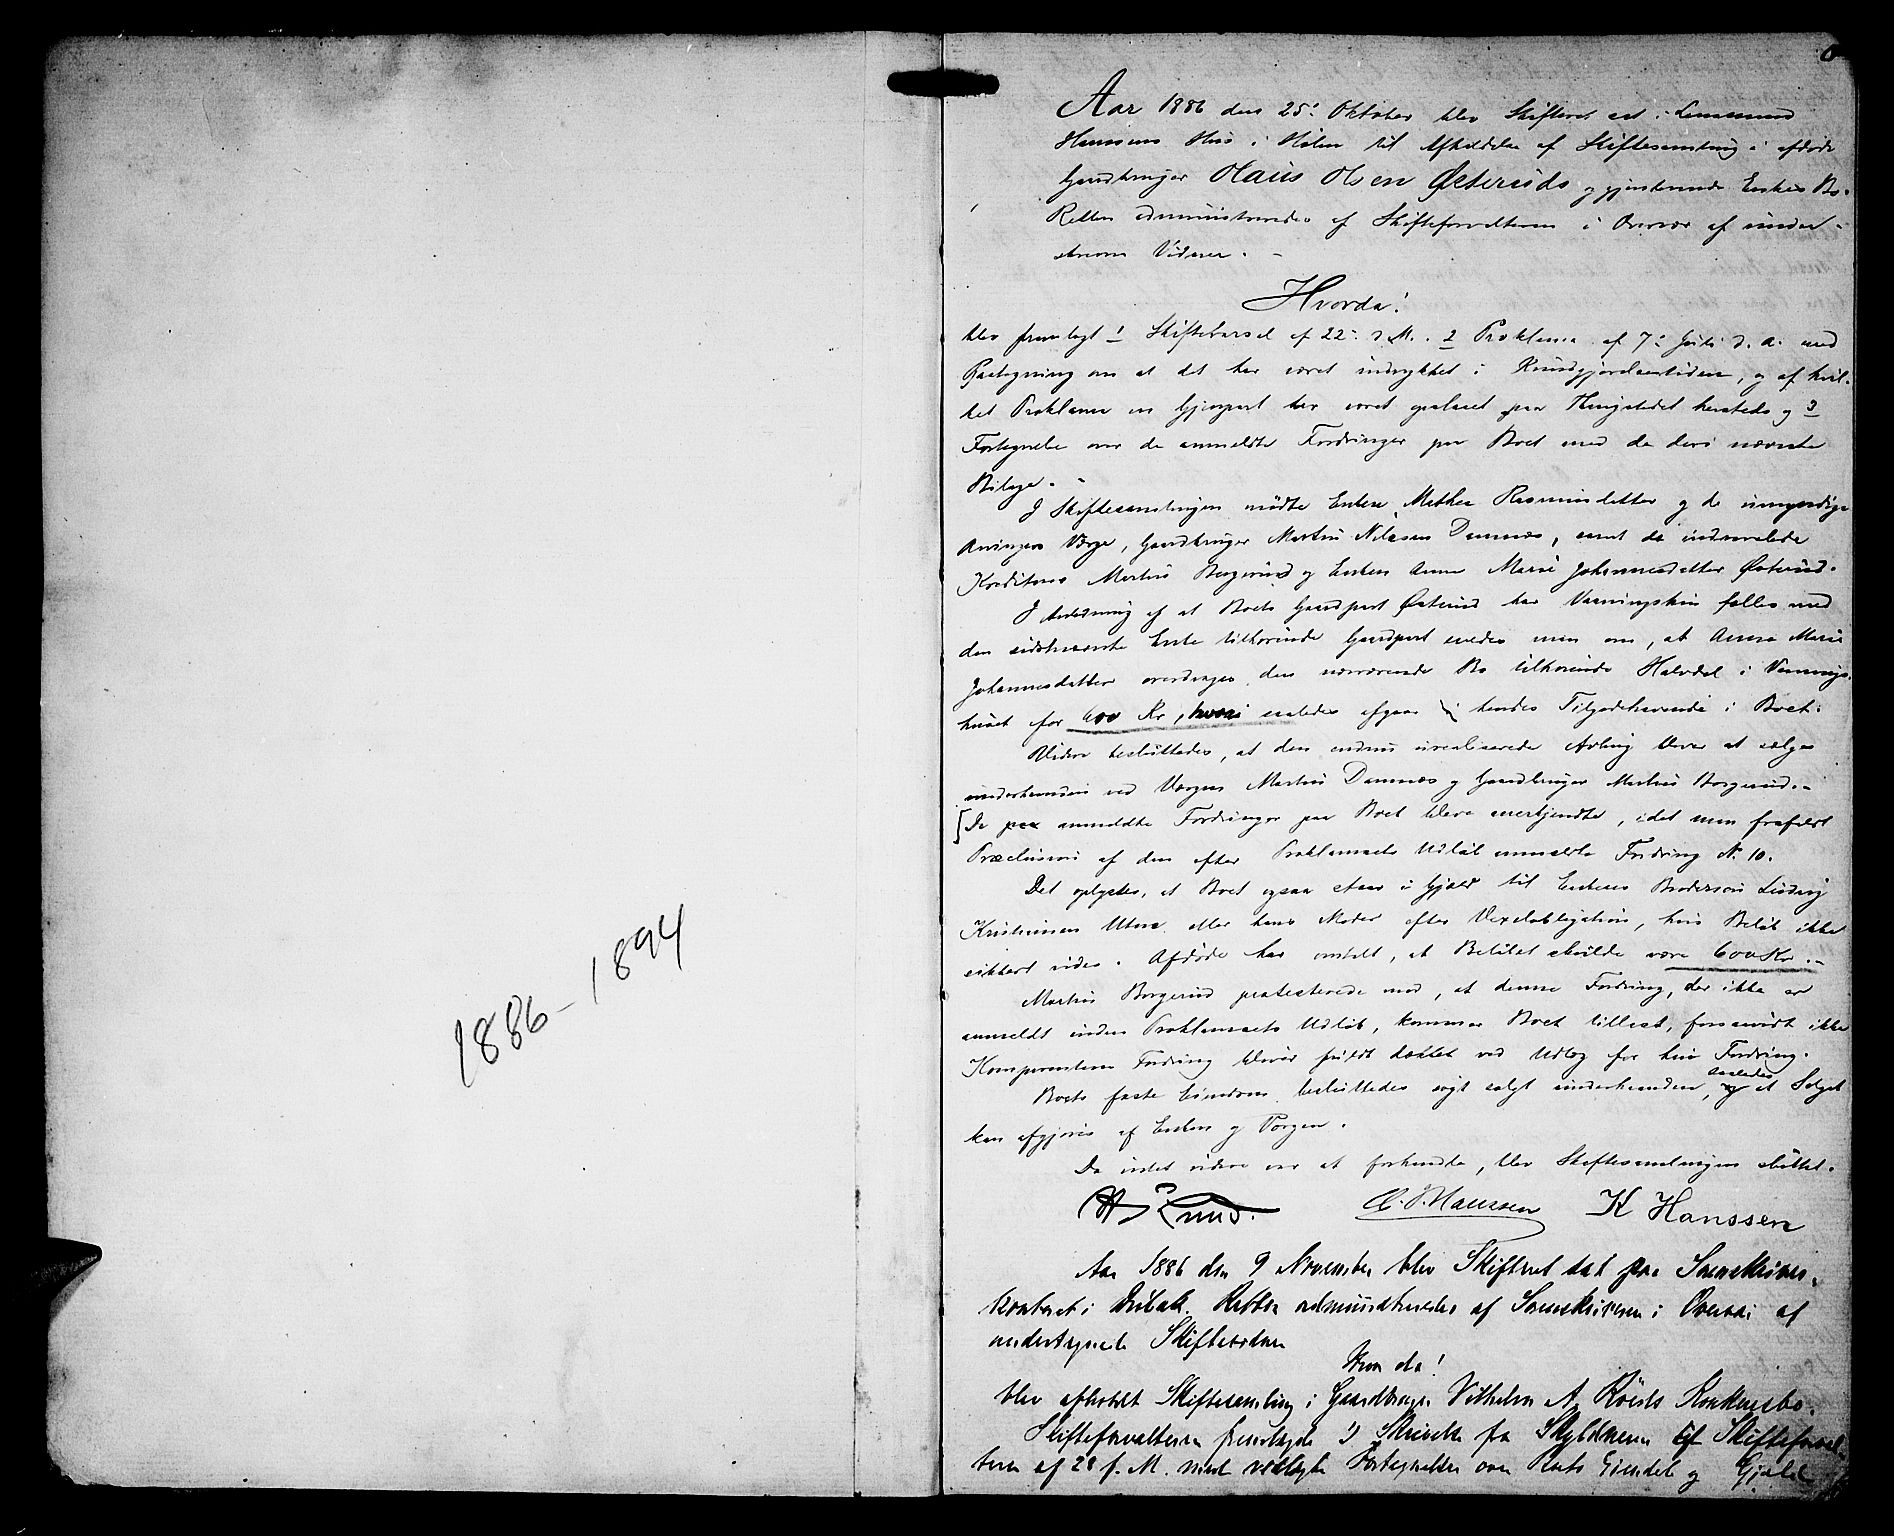 1886-1894
Aar 1886 den 25' Oktober blev Skifteret sat i Lensmand
Hansens Hus i Hølen til Afholdelse af Skiftesamling i afdøde
Gaardbruger Hans Olsen Østeruds og gjenlevende Enkes Bo.
Retten administreredes af Skifteforvalteren i Overvær af under-
skrevne Vidner. -
Hvorda!
blev fremlagt 1 Skiftevarsel af 22' d. M. 2 Proklama af 7' Juli d. A. med
Paategning om at det har været indrykket i Kundgjørelsestidende, og af hvil-
ket Proklama en Gjenpart har været opslaaet paa Thingstedet hersteds og 3
Fortegnelse over de anmeldte Fordringer paa Boet med de deri nævnte
Bilage. -
I Skiftesamlingen mødte Enken Mathea Rasmusdatter og de umyndige
Arvingers Værge, Gaardbruger Martin Nilssen Damnæs, samt de indvarslede
Kreditorer Martius Borgerud og Enken Anne Marie Johannesdatter Østerud.
I Anledning af at Boets Gaardpart Østerud har Vaaningshus fælles med
den sidstnævnte Enke tilhørende Gaardpart enedes man om, at Anne Marie
Johannesdatter overdrages den nærværende Bo tilhørende Halvdel i Vaanings-
huset for 600 Kr, hvori saaledes afgaar i hendes Tilgodehavende i Boet.
Videre besluttedes, at den endnu urealiserede Avling bliver at sælge
underhaanden ved Værgen Martin Damnæs og Gaardbruger Martius Borgerud. -
[De paa anmeldte Fordringer paa Boet bleve anerkjendte, idet man frafaldt
Præclusion af den efter Proklamaets Udløb anmeldte Fordring N. 10.
Det oplystes, at Boet ogsaa staar i Gjæld til Enkens Brodersøn Ludvig
Kristiansen eller hans Moder efter Vexelobligation, hvis Beløb ikke
sikkert vides. Afdøde har omtalt, at Beløbet skulde være 600 Kr. -
Martius Borgerud protesterede mod, at denne Fordring, der ikke er
anmeldt inden Proklamaets Udløb, kommer Boet tillast, forsaavidt ikke
Komparentens Fordring bliver fuldt dækket ved Udlæg for hans Fordring.
Boets faste Eiendom besluttedes søgt solgt underhaanden, saaledes at Salget
kan afgjøres af Enken og Værgen.
Da intet videre var at forhandle, blev Skiftesamlingen sluttet.
C. J. Hanssen K Hanssen
Aar 1886 den 9 November blev Skifteret sat paa Sorenskriver-
kontoret i Drøbak. Retten administreredes af Sorenskriveren i Overvær af
undertegnede Skiftevidner
Hvor da!
blev afholdt Skiftesamling i Gaardbruger Vilhelm A. Konkursbo.
Skifteforvalteren fremlagde 1) Skrivelse fra Skyldneren til Skifteforval-
teren af 28 f. M. med vedlagte Fortegnelse over Boets Eiendele og Gjæld